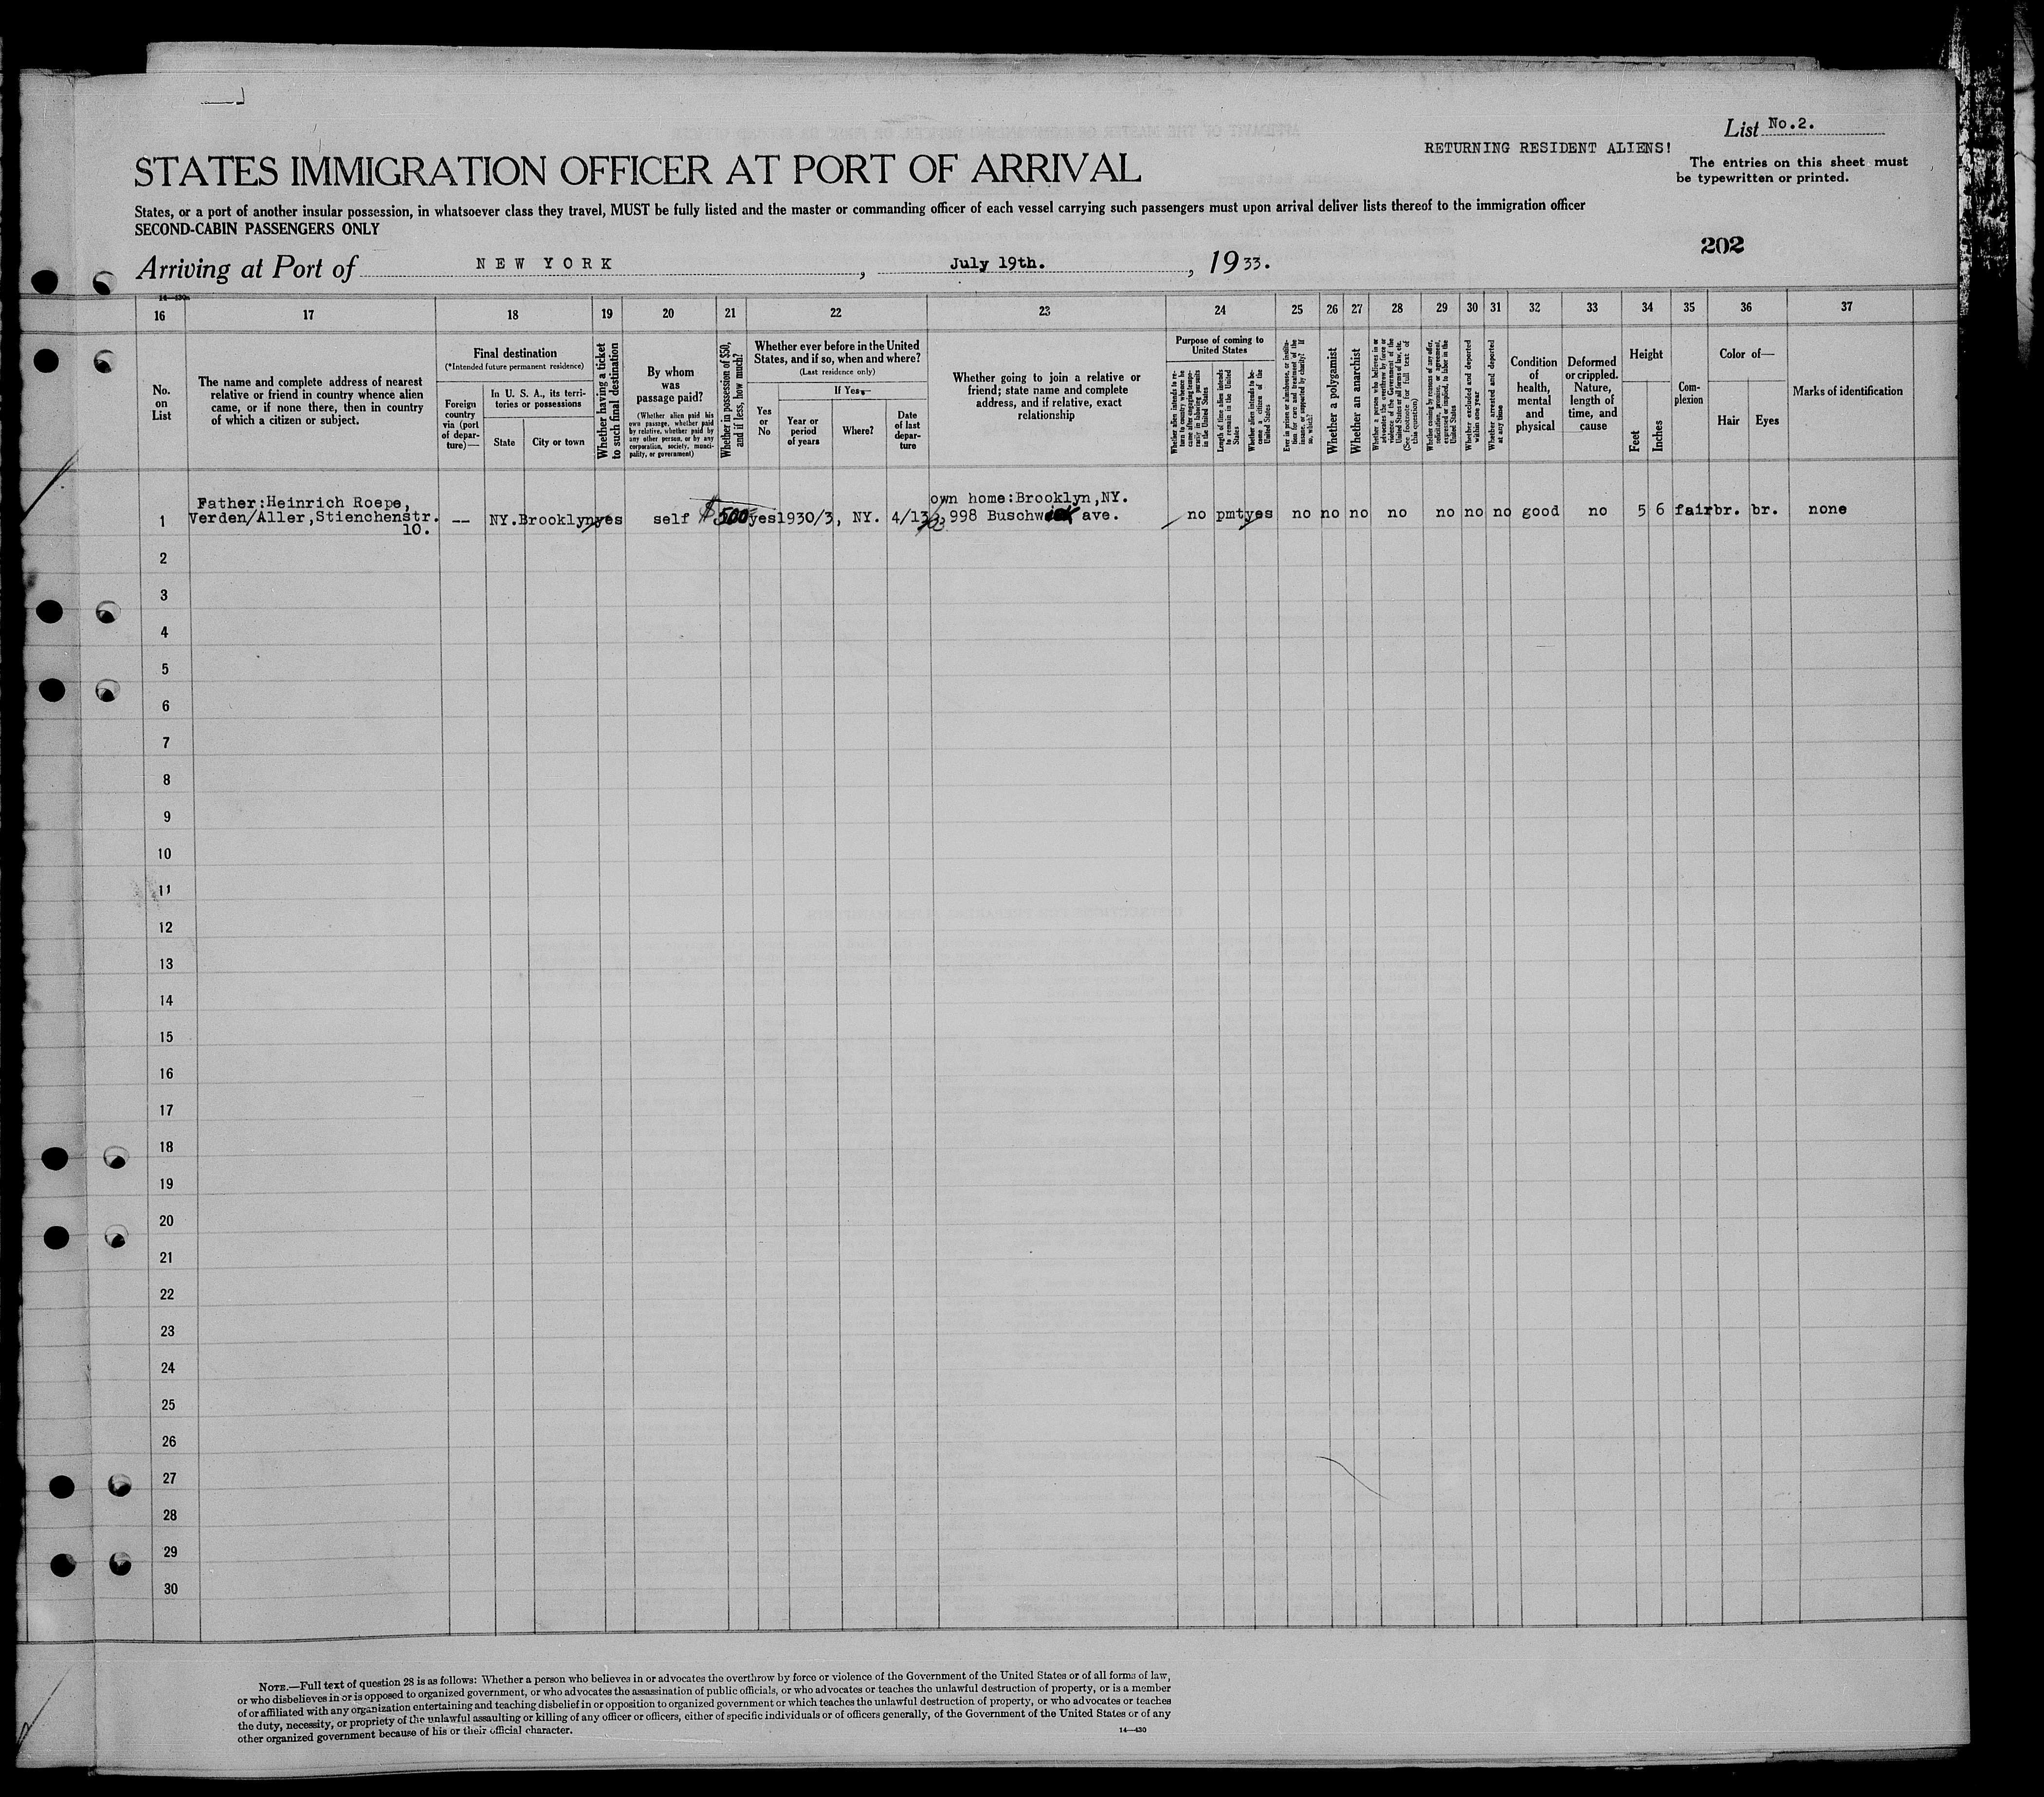 List No.2.
RETURNING RESIDENT ALIENS!
STATES IMMIGRATION OFFICER AT PORT OF ARRIVAL
The entries on this sheet must
be typewritten or printed.
States, or a port of another insular possession, in whatsoever class they travel, MUST be fully listed and the master or commanding officer of each vessel carrying such passengers must upon arrival deliver lists thereof to the immigration officer
SECOND-CABIN PASSENGERS ONLY
202
Arriving at Port of NEW YORK, July 19th., 1933.
14—430
16 17 18 19 20 21 22 23 24 25 26 27 28 29 30 31 32 33 34 35 36 37
No.
on
List
The name and complete address of nearest
relative or friend in country whence alien
came, or if none there, then in country
of which a citizen or subject.
Final destination
(*Intended future permanent residence)
Foreign
country
via (port
of depar-
ture)—
In U. S. A., its terri-
tories or possessions
State
City or town
Whether having a ticket
to such final destination
By whom
was
passage paid?
(Whether alien paid his
own passage, whether paid
by relative, whether paid by
any other person, or by any
corporation, society, munici-
pality, or government)
Whether in possession of $50,
and if less, how much?
Whether ever before in the United
States, and if so, when and where?
(Last residence only)
Yes
or
No
If Yes—
Year or
period
of years
Where?
Date
of last
depar-
ture
Whether going to join a relative or
friend; state name and complete
address, and if relative, exact
relationship
Purpose of coming to
United States
Whether alien intends to re-
turn to country whence he
came after engaging tempo-
rarily in laboring pursuits
in the United States
Length of time alien intends
to remain in the United
States
Whether alien intends to be-
come a citizen of the
United States
Ever in prison or almshouse, or institu-
tion for care and treatment of the
insane, or supported by charity? If
so, which?
Whether a polygamist
Whether an anarchist
Whether a person who believes in or
advocates the overthrow by force or
violence of the Government of the
United States or all forms of law, etc.
(See footnote for full text of
this question)
Whether coming by reason of any offer,
solicitation, promise, or agreement,
expressed or implied, to labor in the
United States
Whether excluded and deported
within one year
Whether arrested and deported
at any time
Condition
of
health,
mental
and
physical
Deformed
or crippled.
Nature,
length of
time, and
cause
Height
Feet
Inches
Com-
plexion
Color of—
Hair
Eyes
Marks of identification
Father:Heinrich Roepe,
own home:Brooklyn,NY.
1 Verden/Aller,Stienchenstr. -- NY. Brooklyn yes self $500 yes 1930/3, NY. 4/13/33 998 Buschwick ave. no pmt yes no no no no no no no good no 5 6 fair br. br. none
10.
2
3
4
5
6
7
8
9
10
11
12
13
14
15
16
17
18
19
20
21
22
23
24
25
26
27
28
29
30
NOTE.—Full text of question 28 is as follows: Whether a person who believes in or advocates the overthrow by force or violence of the Government of the United States or of all forms of law,
or who disbelieves in or is opposed to organized government, or who advocates the assassination of public officials, or who advocates or teaches the unlawful destruction of property, or is a member
of or affiliated with any organization entertaining and teaching disbelief in or opposition to organized government or which teaches the unlawful destruction of property, or who advocates or teaches
the duty, necessity, or propriety of the unlawful assaulting or killing of any officer or officers, either of specific individuals or of officers generally, of the Government of the United States or of any
other organized government because of his or their official character.
14—430